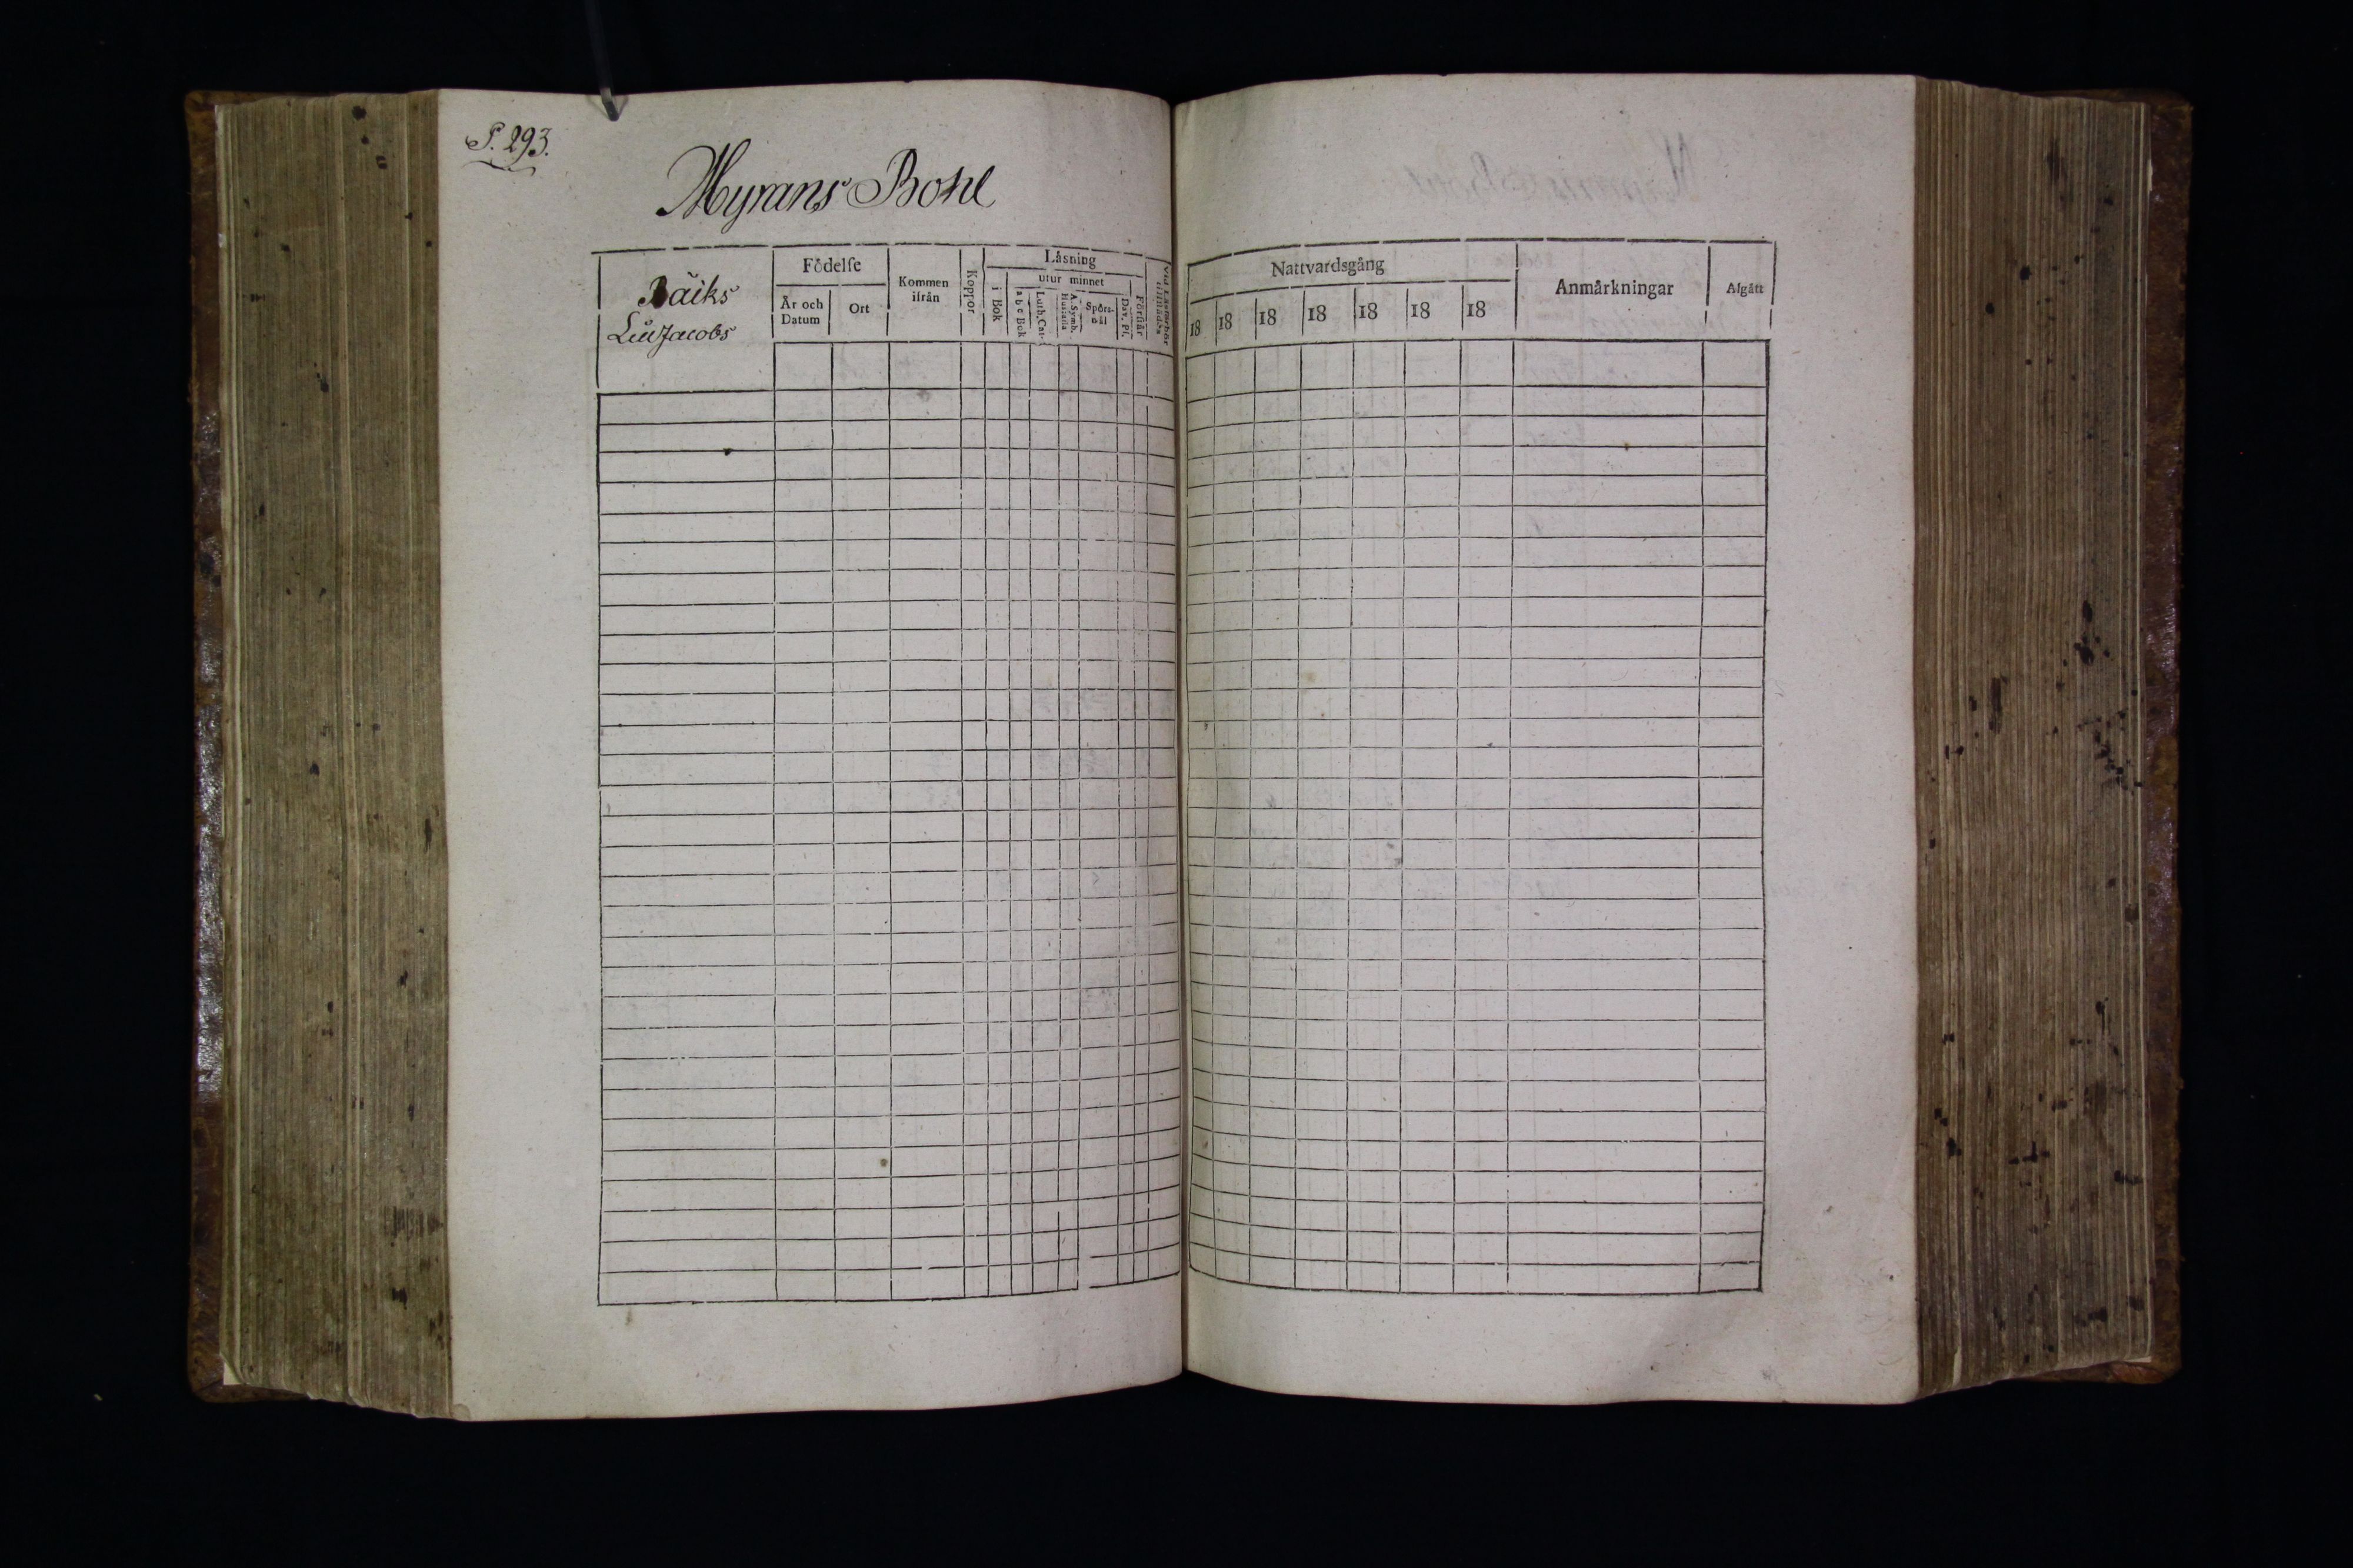 P. 293.
Myrans Bohl
Bäiks
LillJacobs
Födelse
År och Datum
Ort
Kommen ifrån
Koppor
Läsning
i Bok
utur minnet
a b c Bok
Luth. Cat.
A. Symb. Hustafla
Spörsmål
Dav. Ps.
Förstår
Nattvardsgång
18 18 18 18 18 18 18
Anmärkningar
Afgått